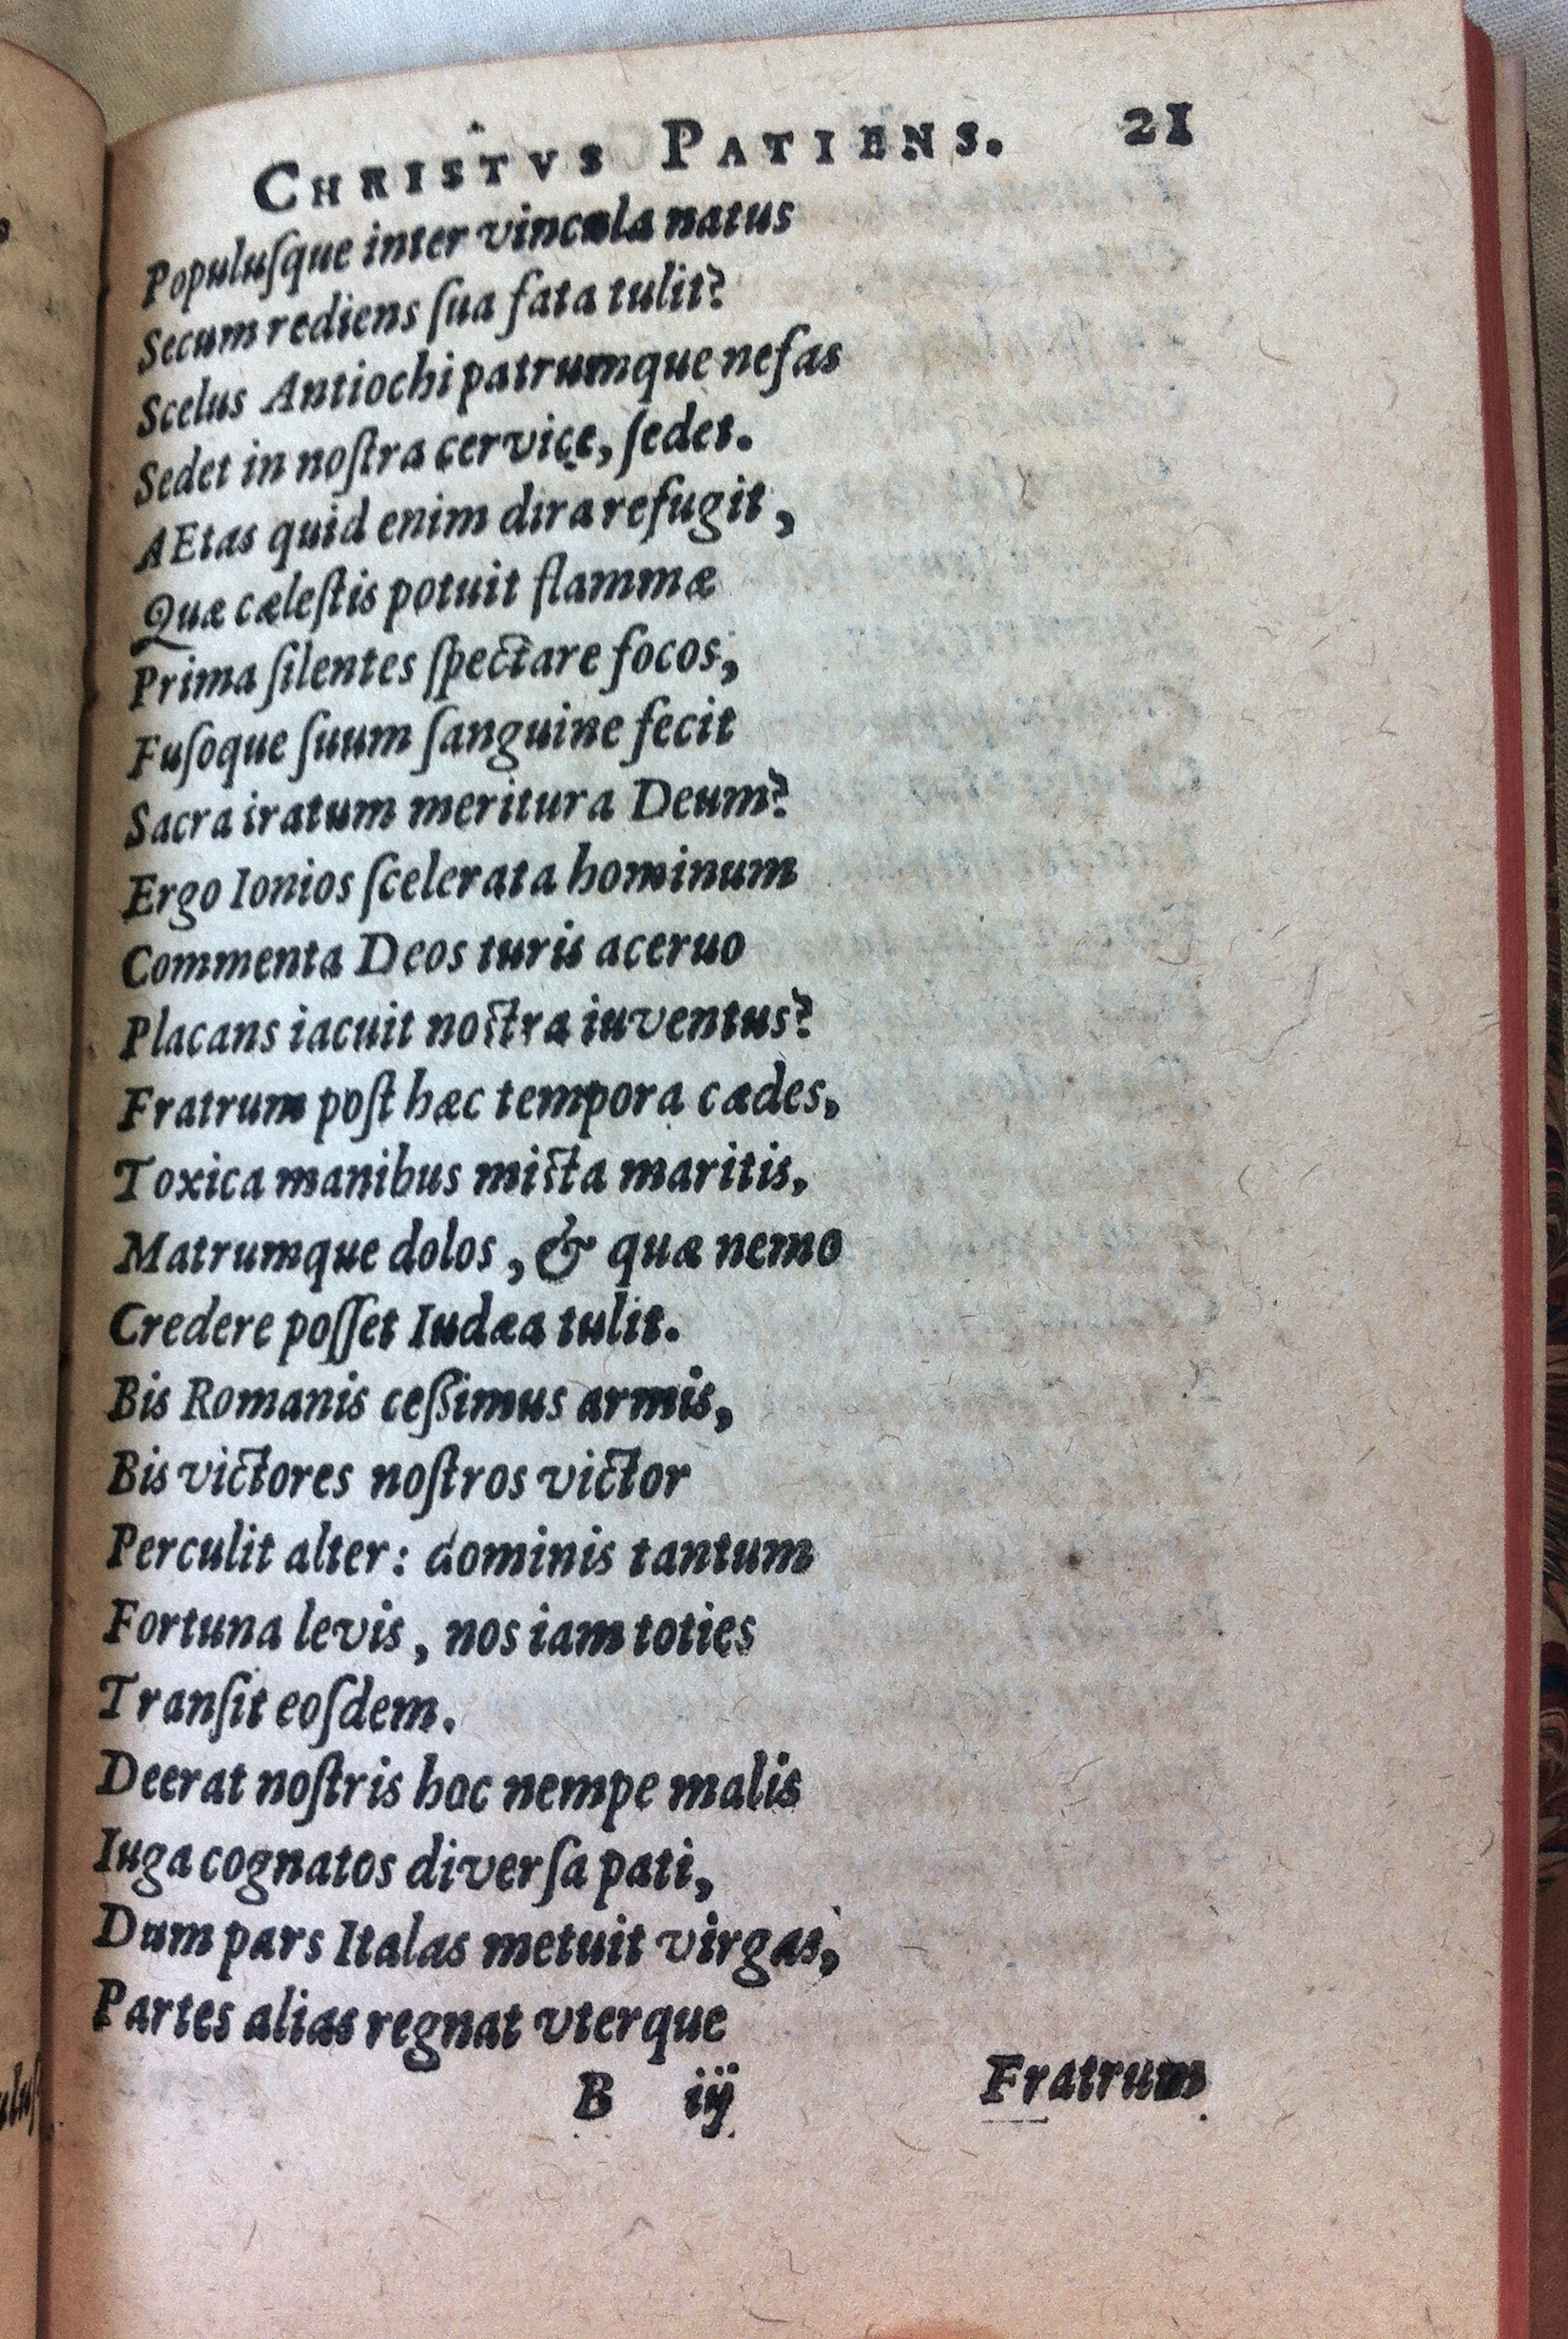 CHRISTVS PATIENS. 21
Populuſque inter vincula natus
Secum rediens ſua fata tulit?
Scelus Antiochi patrumque nefas
Sedet in noſtra cervice, ſedet.
AEtas quid enim dira refugit,
Quæ cæleſtis potuit flammæ
Prima ſilentes ſpectare focos,
Fuſoque ſuum ſanguine fecit
Sacra iratum meritura Deum?
Ergo Ionios ſcelerata hominum
Commenta Deos turis aceruo
Placans iacuit noſtra iuventus?
Fratrum poſt hæc tempora cædes,
Toxica manibus miſta maritis,
Matrumque dolos, & quæ nemo
Credere poſſet Iudæa tulit.
Bis Romanis ceſſimus armis,
Bis victores noſtros victor
Perculit alter: dominis tantum
Fortuna levis, nos iam toties
Tranſit eoſdem.
Deerat noſtris hoc nempe malis
Iuga cognatos diverſa pati,
Dum pars Italas metuit virgas,
Partes alias regnat vterque
B iij Fratrum